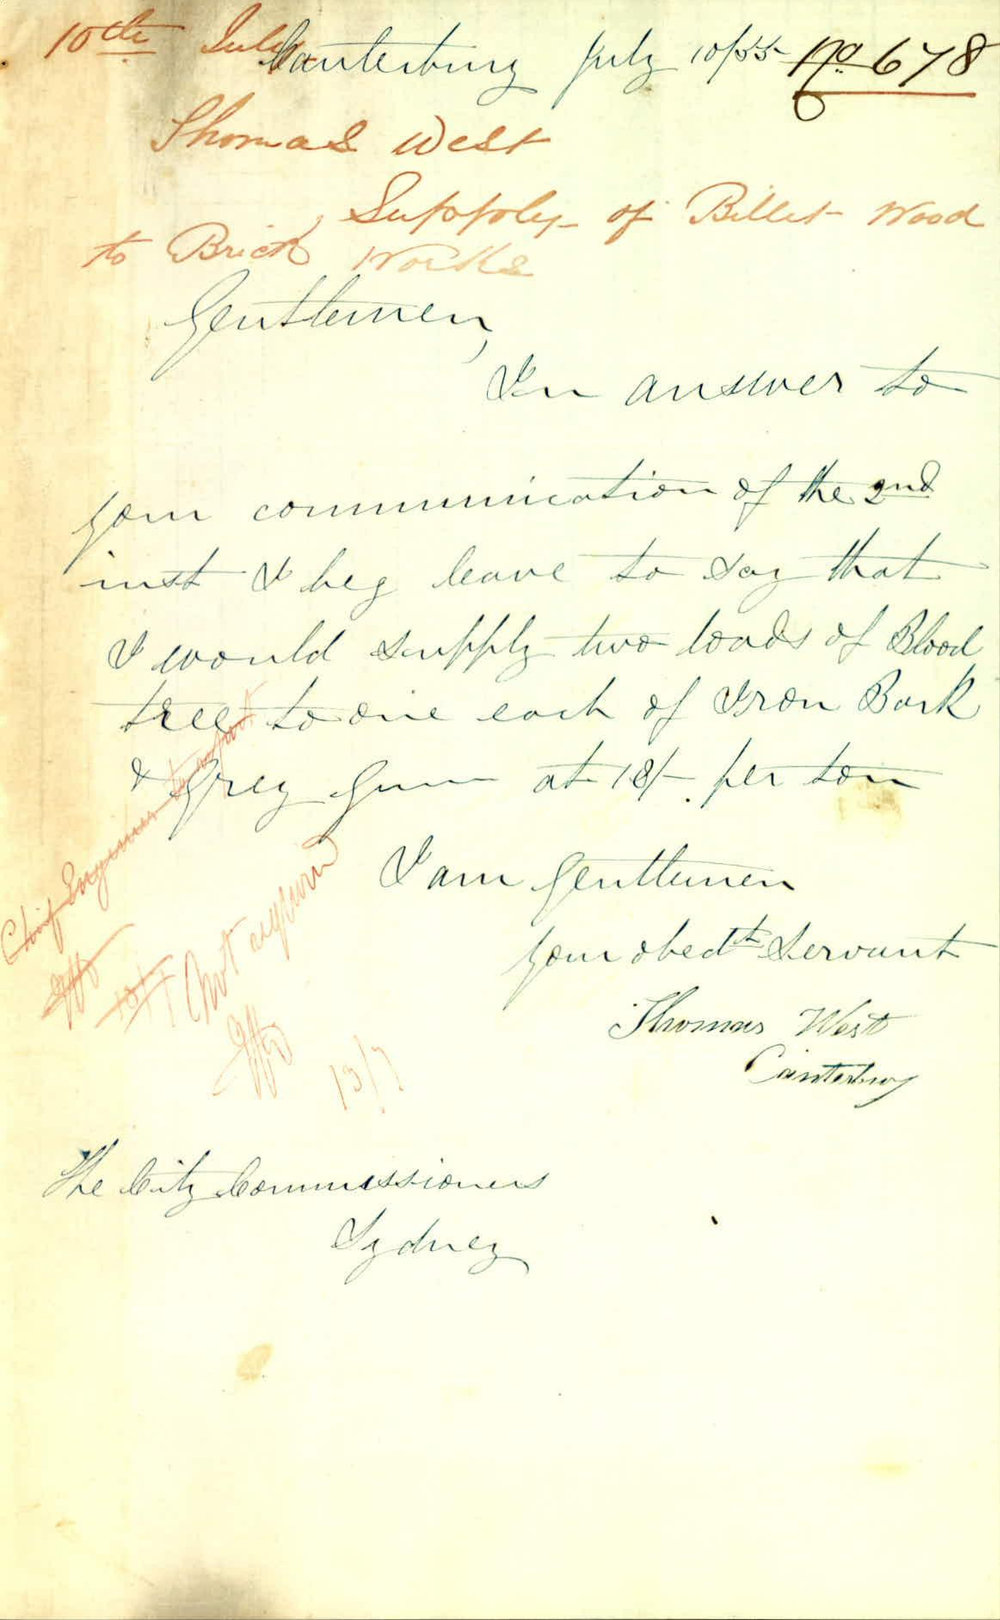 10th July
Canterbury July 10/55 No. 678
Thomas West
Supply of Billet Wood
to Brick Works
Gentlemen,
In answer to
your communication of the 2nd
inst I beg leave to say that
I would supply two loads of Blood
tree to one each of Iron Bark
& Grey Gum at 18/- per ton
I am Gentlemen
Your obedt Servant
Thomas West
Canterbury
Chief Engineer to report
Not required
13/7
The City Commissioners
Sydney